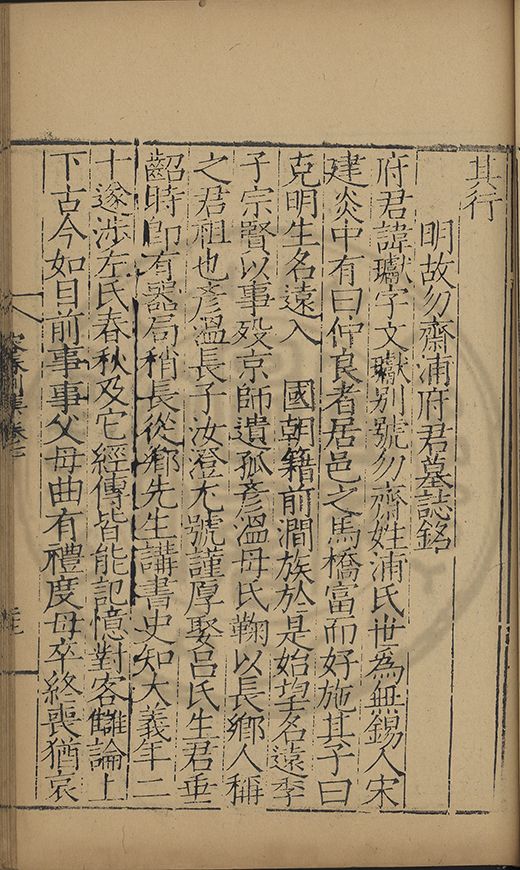 其行
明故勿齋浦府君墓誌銘
府君諱瓛字文瓛别號勿齋姓浦氏世為無錫人宋
建炎中有曰仲良者居邑之馬橋富而好施其子曰
克明生名遠入　國朝籍前澗族於是始望名遠季
子宗賢以事殁京師遺孤彦溫母氏鞠以長鄉人稱
之君祖也彦溫長子汝澄尤號謹厚娶吕氏生君垂
齠時即有器局稍長從鄉先生講書史知大義年二
十遂涉左氏春秋及它經傳皆能記憶對客雠論上
下古今如目前事事父母曲有禮度母卒終喪猶哀